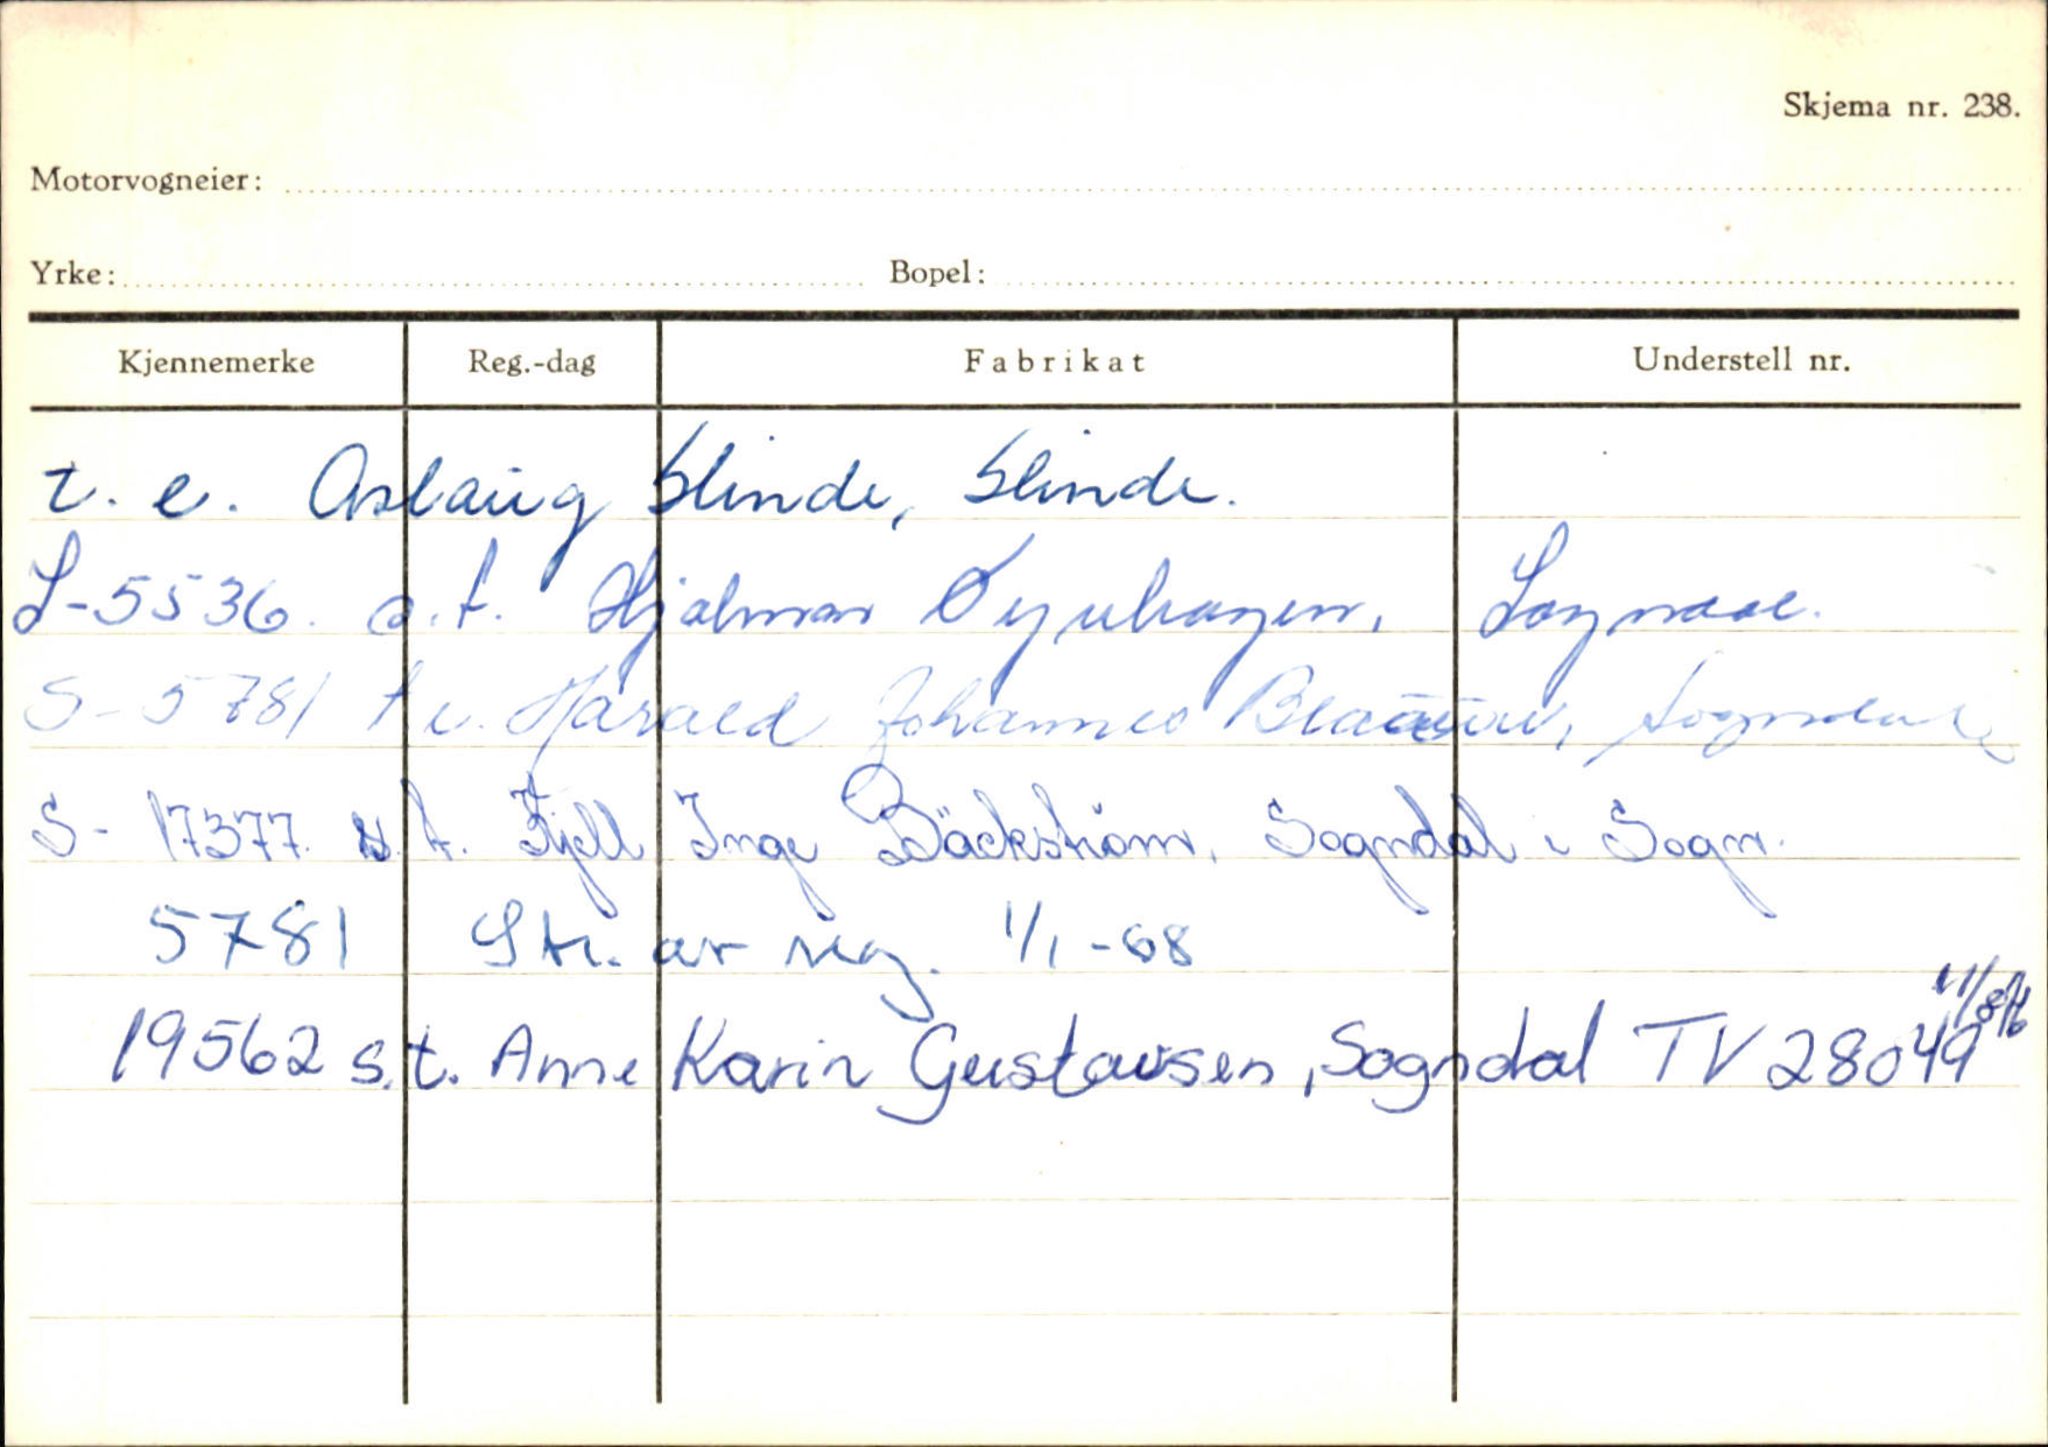 Skjema nr. 238.
Motorvogneier:
Yrke: Bopel:
Kjennemerke Reg.-dag Fabrikat Understell nr.
t. e. Aslaug Slinde, Slinde.
S-5536. s.t. Hjalmar Øyrehagen, Sogndal.
S-5781 t e. Harald Johannes Sogndal
S- 17377 s. t. Kjell Inge Bäckström, Sogndal i Sogn.
5781 Str. av reg. 1/1-68
11/8-76
19562 s.t. Anne Karin Gustavsen, Sogndal TV 28049